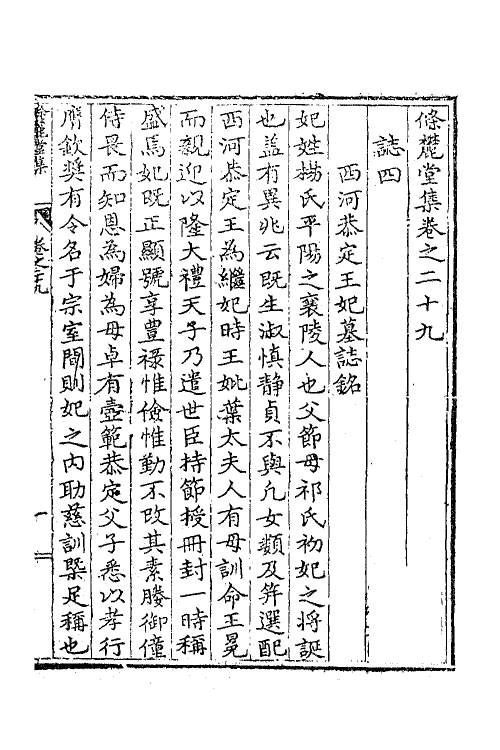 條麓堂集卷之二十九
誌四
西河恭定王妃墓誌銘
妃姓楊氏平陽之襄陵人也父節母祁氏初妃之將誕
也蓋有異兆云既生淑慎靜貞不與凡女類及筓選配
西河恭定王為繼妃時王妣葉太夫人有母訓命王冕
而親迎以隆大禮天子乃遣世臣持節授冊封一時稱
盛焉妃既正顯號享豊祿惟儉惟勤不改其素媵御僮
侍畏而知恩為婦為母卓有壼範恭定父子悉以孝行
膺欽奬有令名于宗室間則妃之內助慈訓槩足稱也
條麓堂集
卷之二九
一